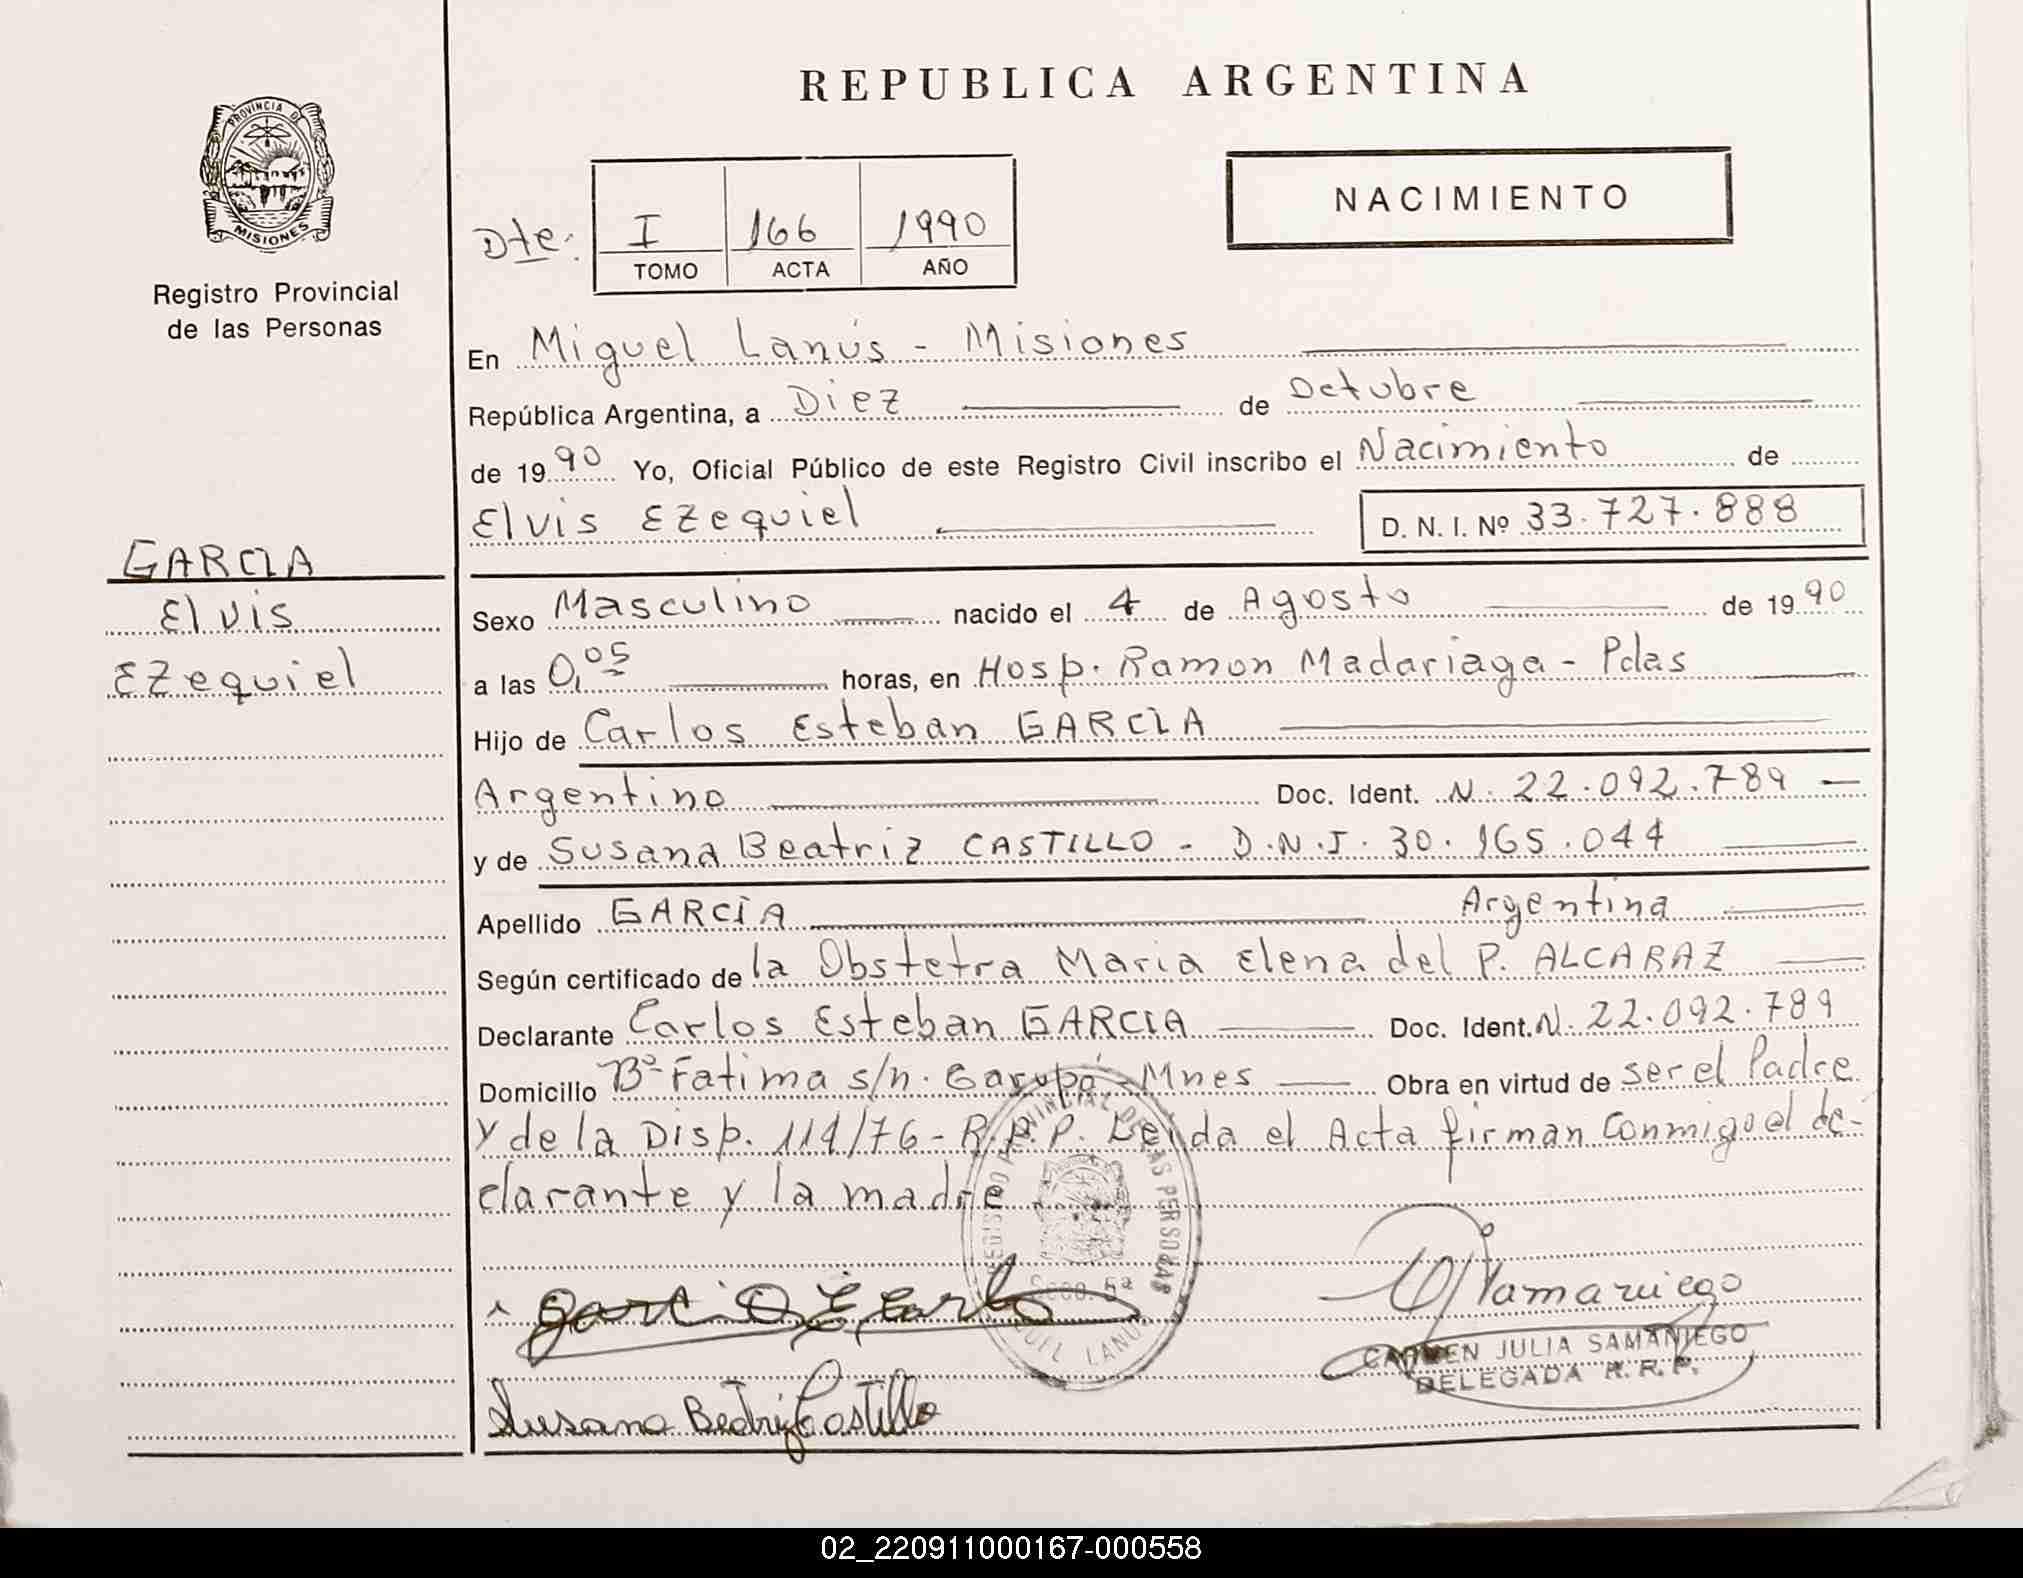 REPUBLICA ARGENTINA
PROVINCIA DE
MISIONES
Registro Provincial
de las Personas
NACIMIENTO
Dte: I 166 1990
TOMO ACTA AÑO
En Miguel Lanús - Misiones
República Argentina, a Diez de Octubre
de 1990 Yo, Oficial Público de este Registro Civil inscribo el Nacimiento de
Elvis Ezequiel D. N. I. Nº 33.727.888
GARCIA
Elvis
Ezequiel
Sexo Masculino nacido el 4 de Agosto de 1990
a las 0,05 horas, en Hosp. Ramon Madariaga - Pdas
Hijo de Carlos Esteban GARCIA
Argentino Doc. Ident. N. 22.092.789
y de Susana Beatriz CASTILLO - D.N.I. 30.165.044
Apellido GARCÍA Argentina
Según certificado de la Obstetra Maria Elena del P. ALCARAZ
Declarante Carlos Esteban GARCIA Doc. Ident. N. 22.092.789
Domicilio Bº Fatima s/n. Garupá - Mnes Obra en virtud de ser el Padre
y de la Disp. 111/76 - R.P.P. Leida el Acta firman conmigo el de-
clarante y la madre
REGISTRO PROVINCIAL DE LAS PERSONAS
Secc. 5ª
LANUS
Garcia E Carlos
Samaniego
CARMEN JULIA SAMANIEGO
DELEGADA R. R. P.
Susana Beatriz Castillo
02_220911000167-000558